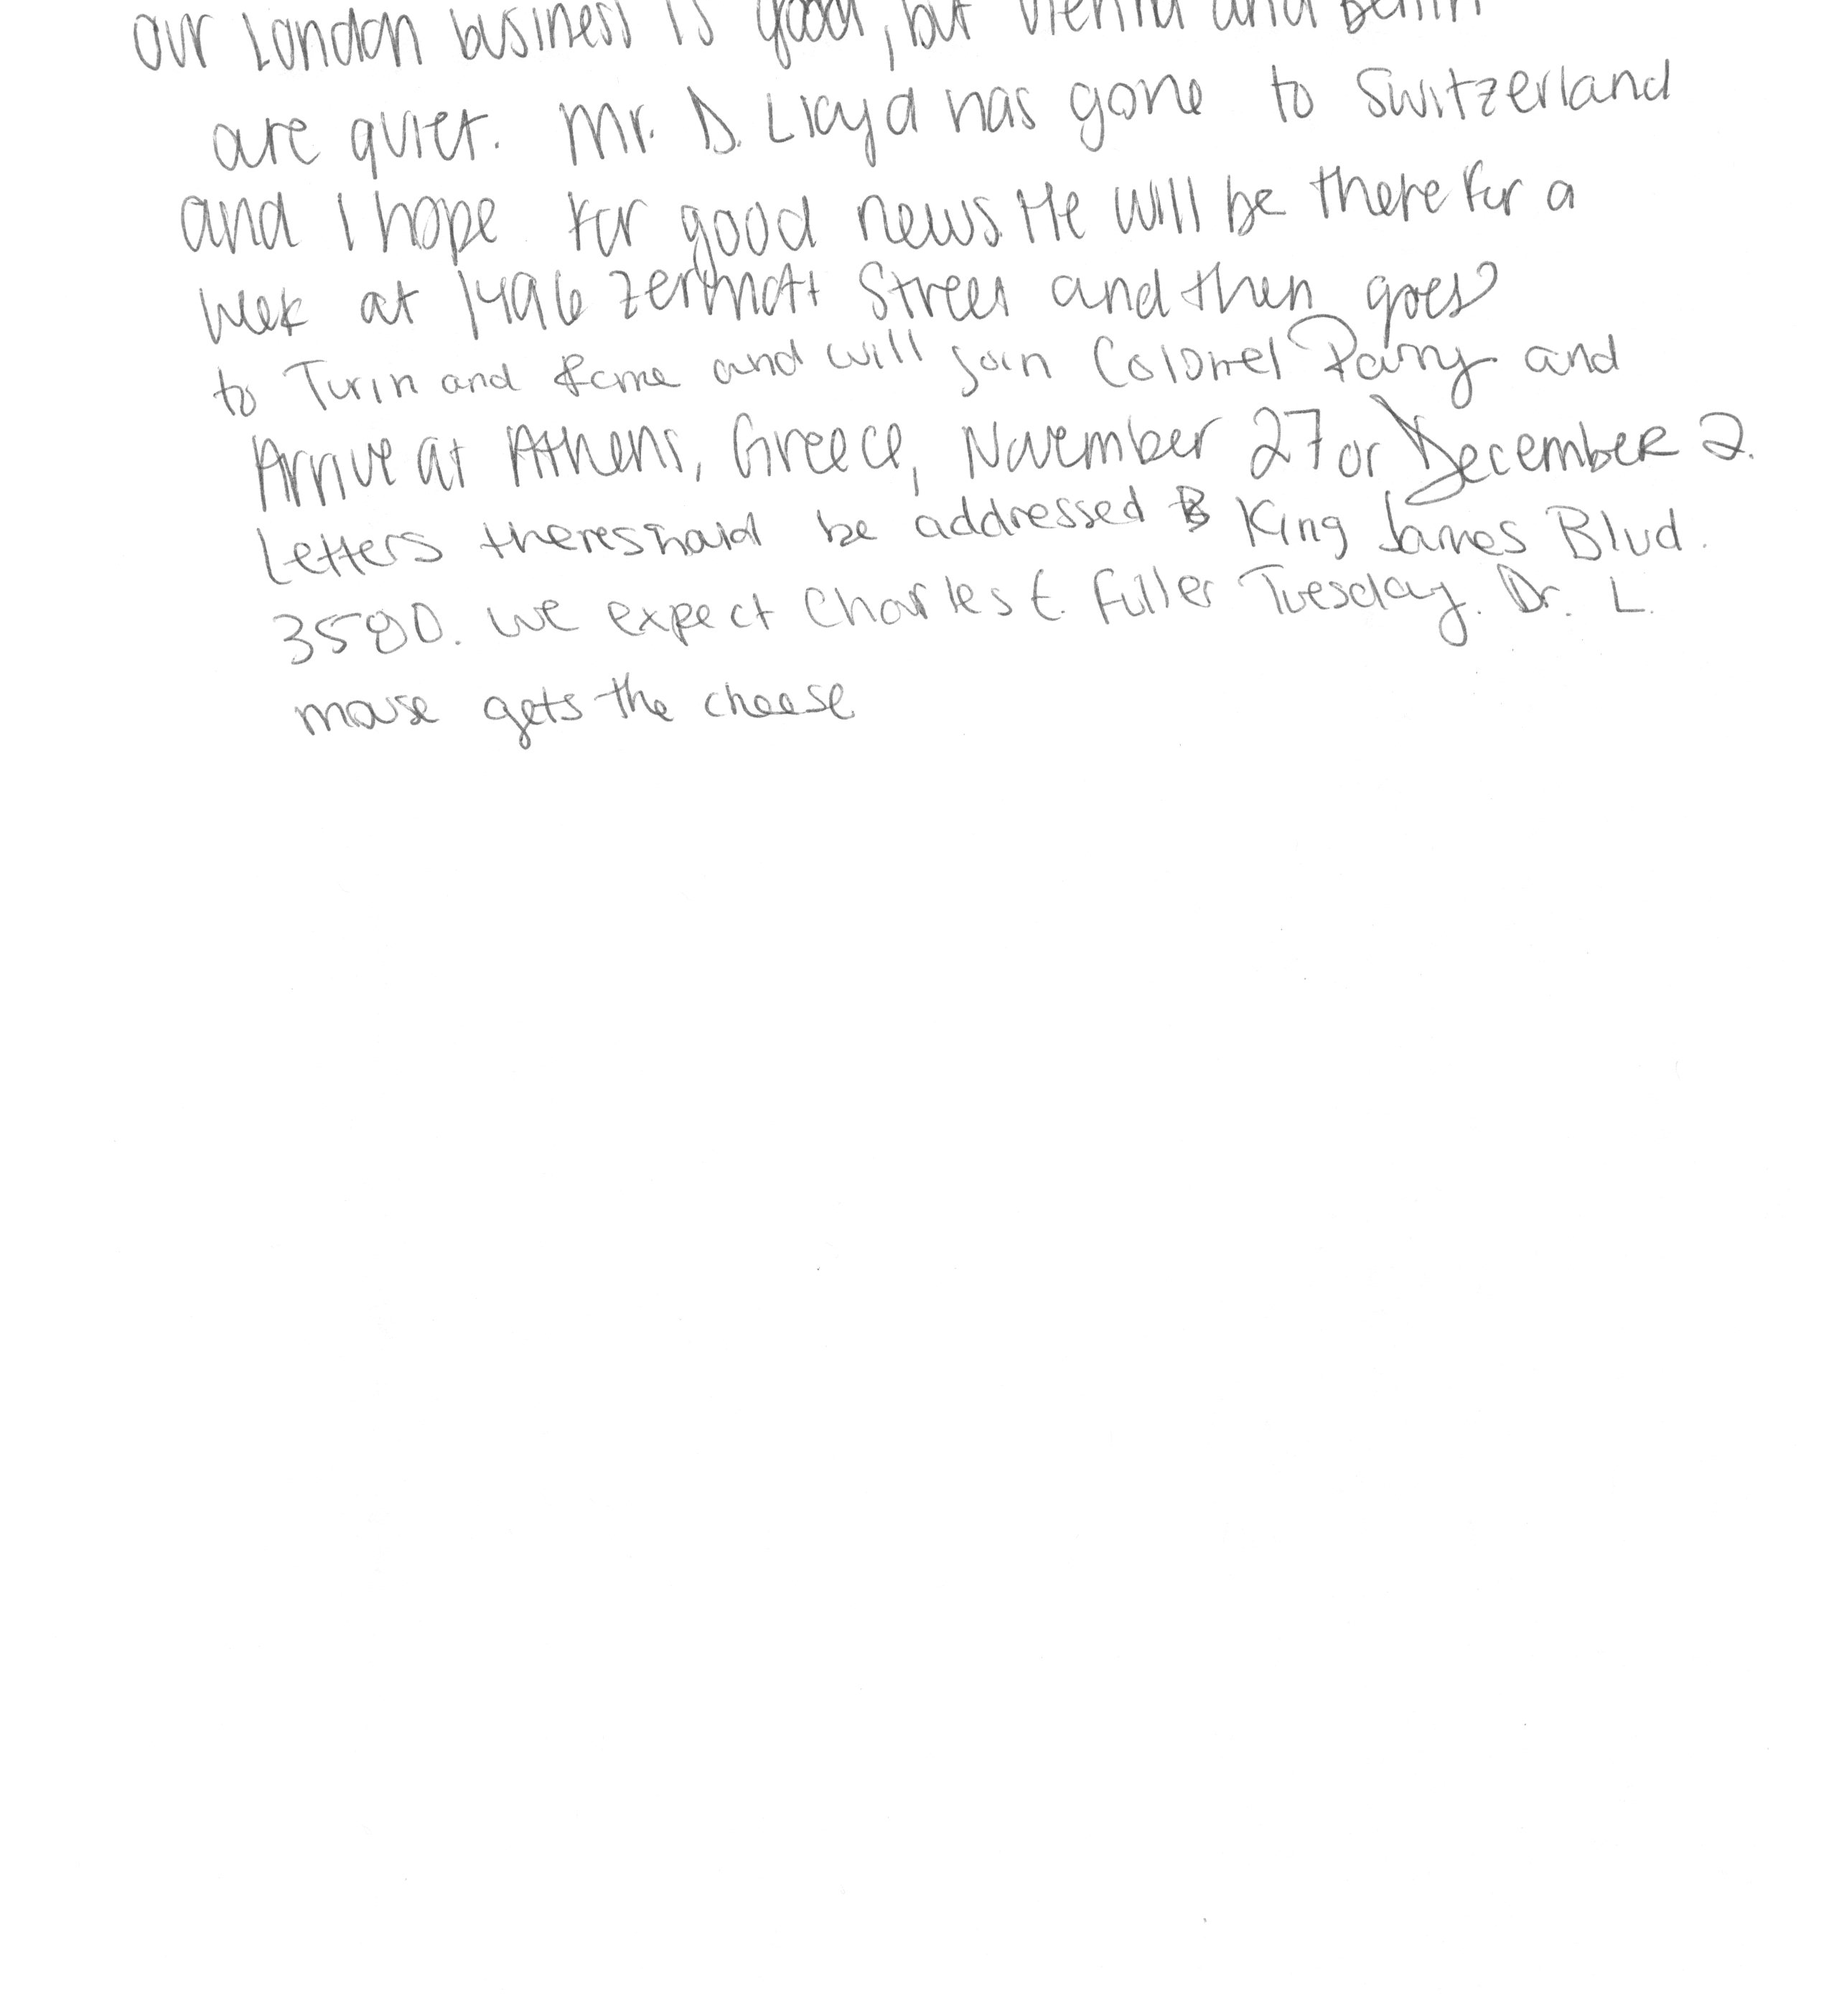 our London business is good, but Vienna and Berlin
are quiet. Mr. D. Lloyd has gone to Switzerland
and I hope for good news. He will be there for a
week at 1496 Zermott Street and then goes
to Turin and Rome and will join Colonel Parry and
Arrive at Athens, Greece, November 27 or December 2.
Letters there should be addressed to King James Blvd.
3580. We expect Charles E. Fuller Tuesday. Dr. L.
mouse gets the cheese